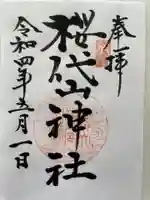 奉拝
桜岱山神社
令和四年五月一日